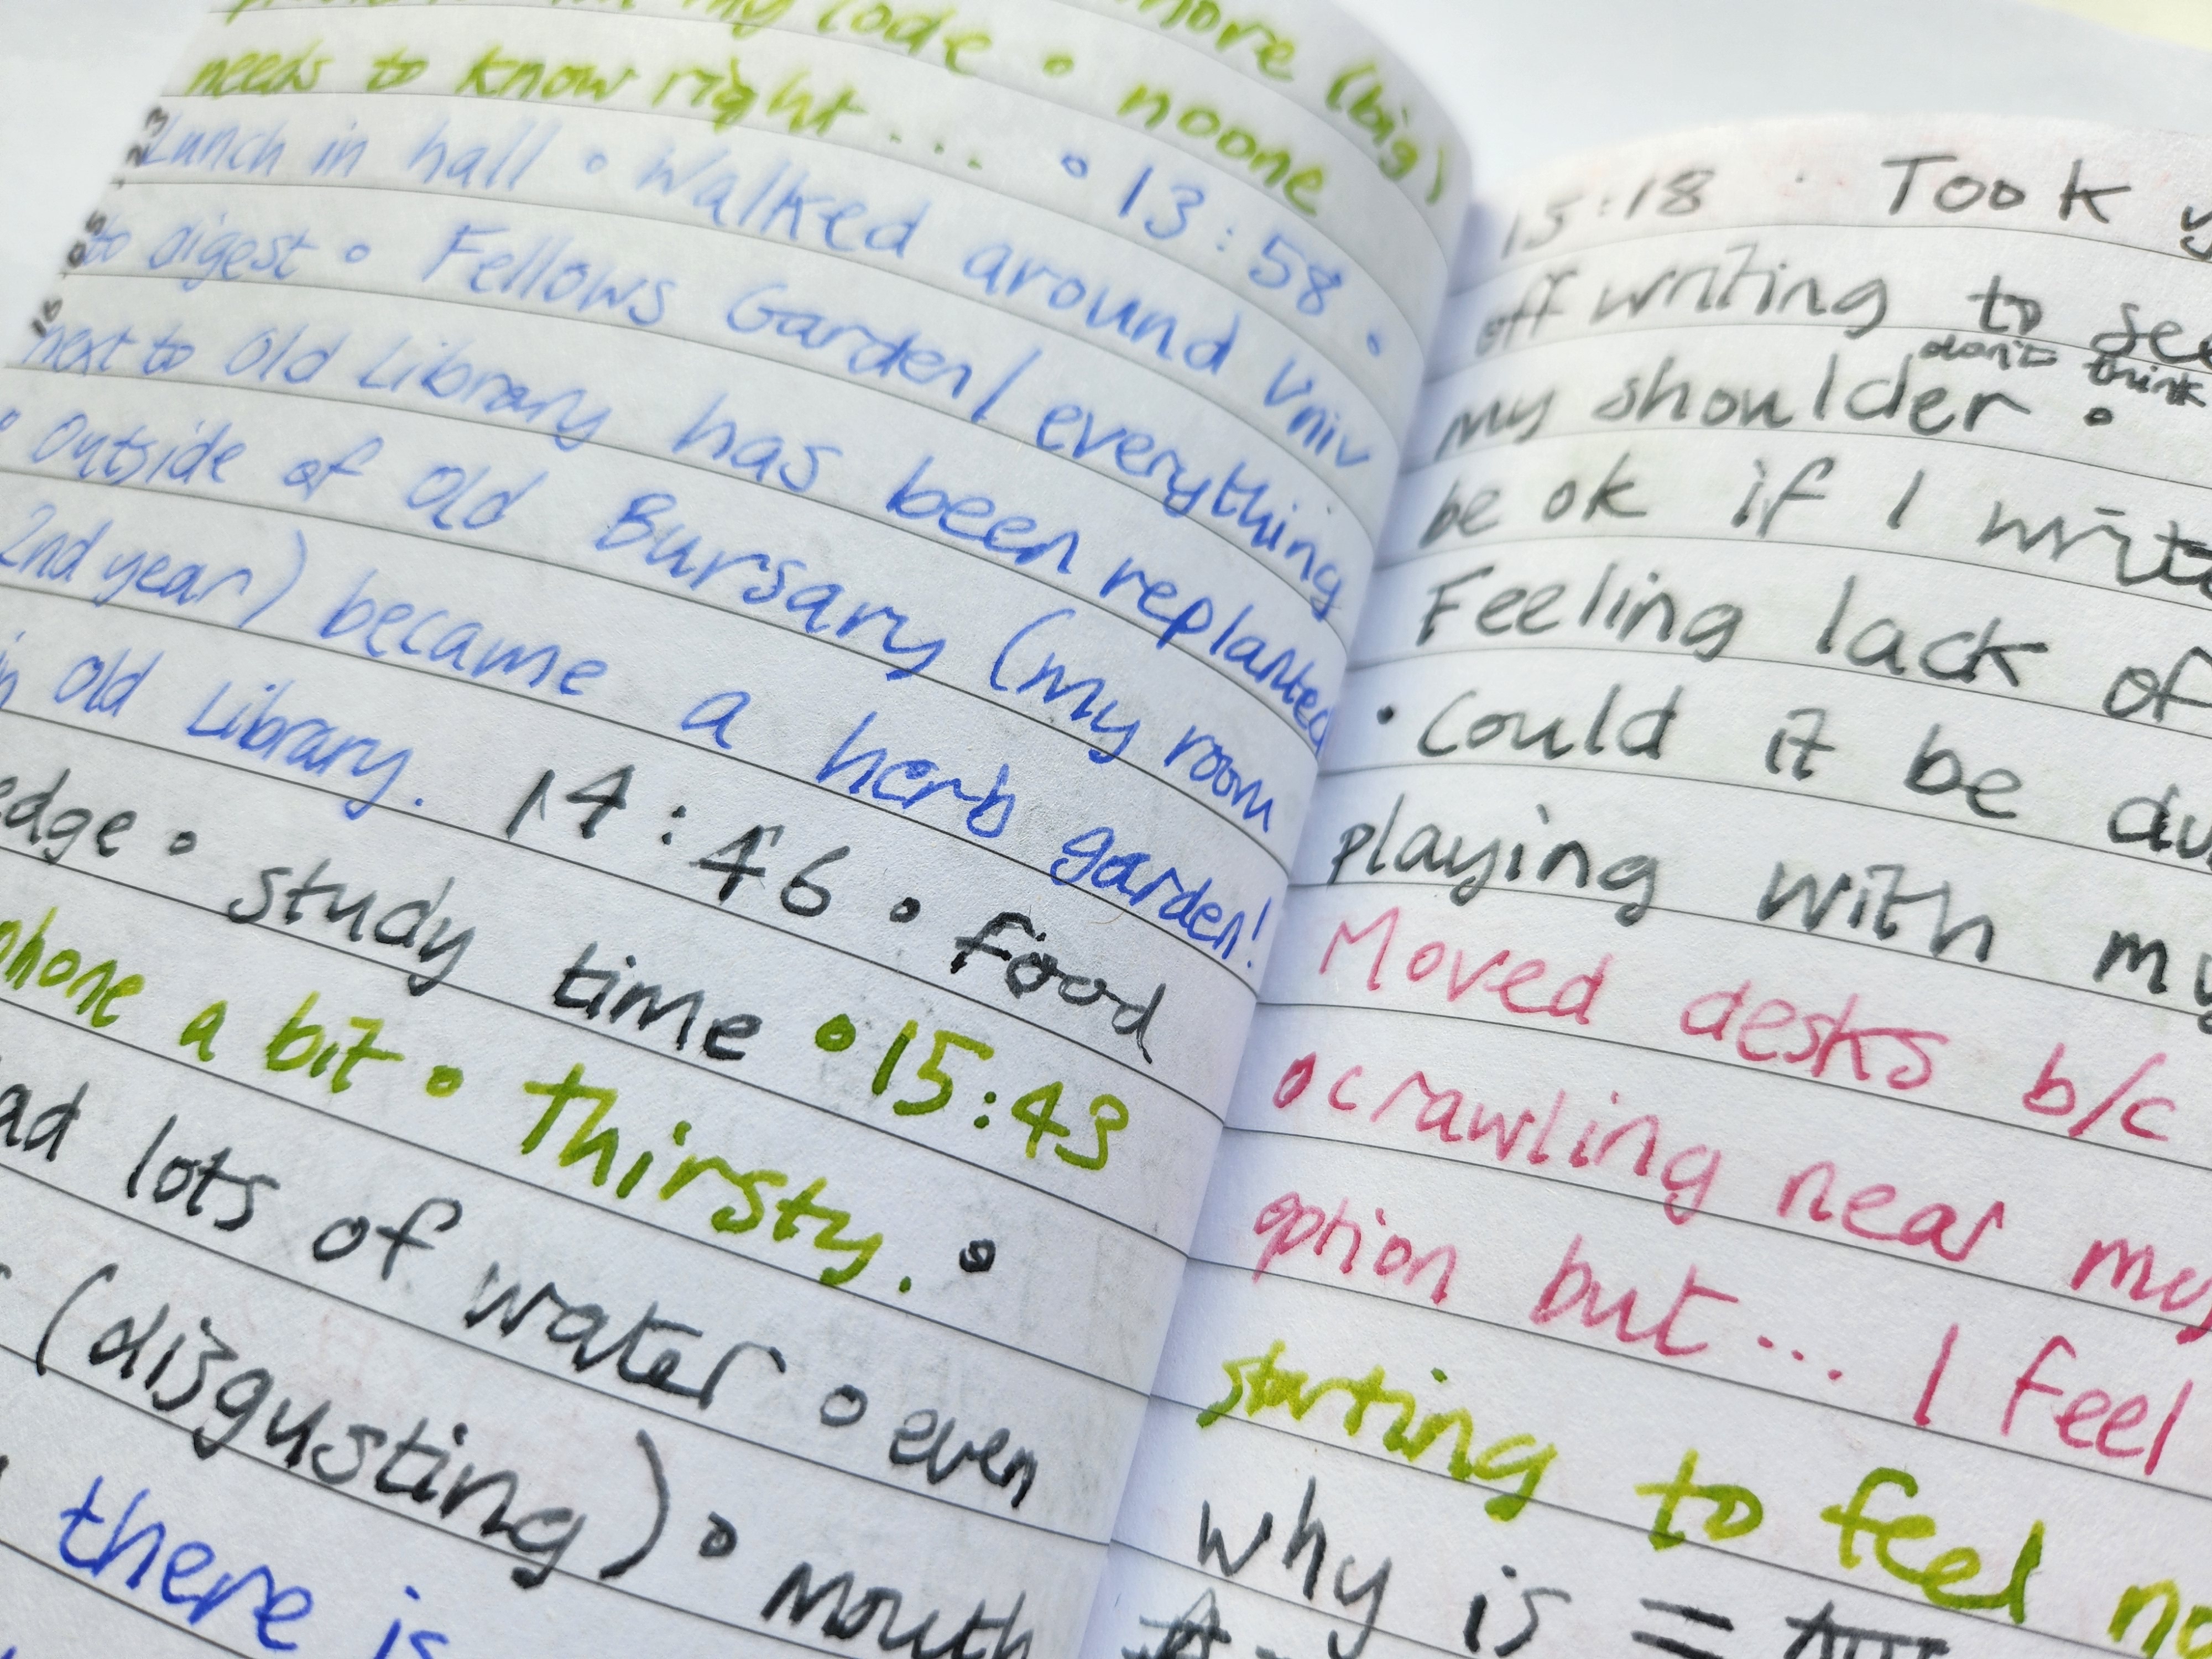 my code • noone
more (big)
needs to know right... • 13:58 •
Lunch in hall • Walked around Univ
to digest • Fellows Garden/everything
next to Old Library has been replanted
• Outside of Old Bursary (my room
2nd year) became a herb garden!
in Old Library. 14:46 • food
study time • 15:43
phone a bit • thirsty. •
lots of water • even
(disgusting) • Mouth
there is
15:18 • Took
off writing to
don't think
my shoulder •
be ok if I write
Feeling lack of
• Could it be
playing with my
Moved desks b/c
• crawling near my
option but... I feel
starting to feel
why is =